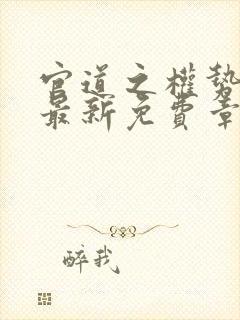 官道之權勢
最新免費章
醉我